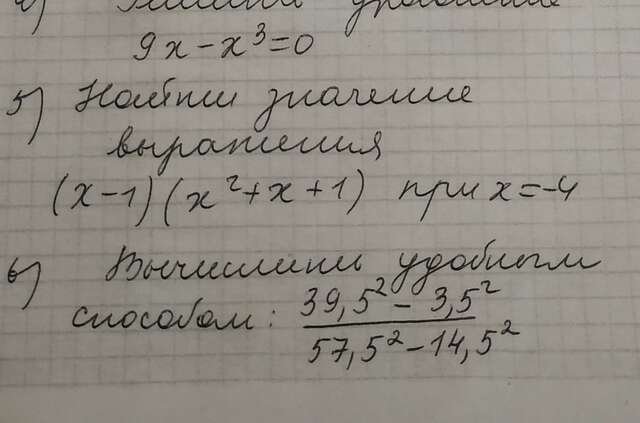 9x - x³ = 0
5) Найти значение
выражения
(x - 1)(x² + x + 1) при x = -4
6) Вычислить удобным
способом: (39,5² - 3,5²) / (57,5² - 14,5²)